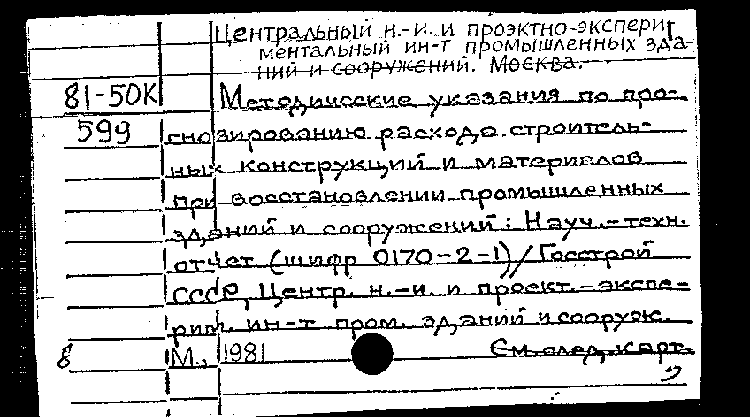 Центральный н.-и. и проэктно-экспери
ментальный ин-т промышленных зда
ний и сооружений. Москва.
81-50К Методические указания по про-
599 гнозированию расхода строитель-
ных конструкций и материалов
при восстановлении промышленных
зданий и сооружений: Науч.-техн.
отчет (шифр 0170-2-1)/Госстрой
СССР, Центр. н.-и. и проект.-экспе-
рим. ин-т пром. зданий и сооруж.
8 М., 1981 См. след. карт.